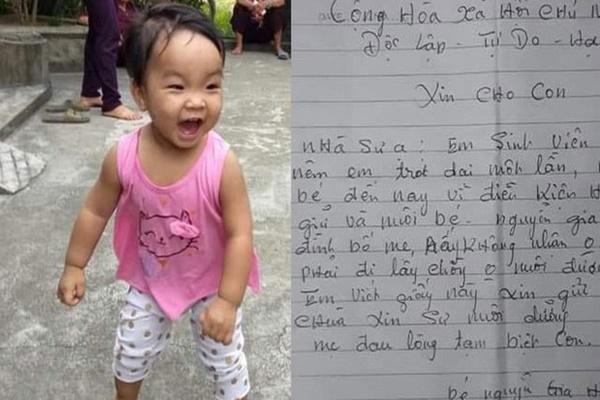 Cộng Hòa Xã Hội Chủ N
Độc Lập - Tự Do - Hạ
Xin CHO CON
NHÀ SƯ A: Em Sinh Viên
nên em trót dại một lần,
bé đến nay vì điều kiện
giữ và nuôi bé. nguyễn gia
đình bố mẹ, không nhận
phải đi lấy chồng nuôi
Em viết giấy này xin gửi
CHÙA Xin Sư nuôi dưỡng
mẹ đau lòng tạm biệt Con.
bé nguyễn gia H